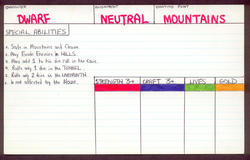 CHARACTER ALIGNMENT STARTING POINT
DWARF NEUTRAL MOUNTAINS
SPECIAL ABILITIES
1. Safe in Mountains and Chasm.
2. May Evade Enemies in HILLS.
3. May add 1 to his die roll in the Cave.
4. Rolls only 1 dice in the TUNNEL.
5. Rolls only 2 dice in the LABYRINTH.
6. Is not affected by the Maze.
STRENGTH 3+ CRAFT 3+ LIVES GOLD